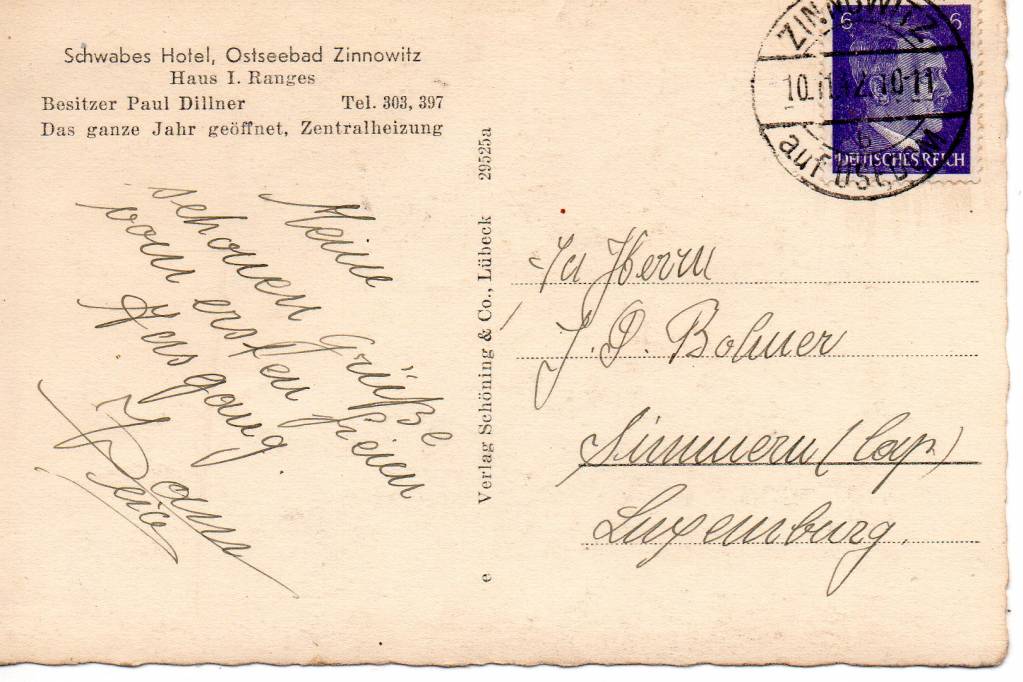 Schwabes Hotel, Ostseebad Zinnowitz
Haus I. Ranges
Besitzer Paul Dillner Tel. 303, 397
Das ganze Jahr geöffnet, Zentralheizung
Meine
schonen Grüße
vom ersten freien
Ausgang.
Verlag Schöning & Co., Lübeck 29525a
e
ZINNOWITZ
10.11.42.10-11
b
auf USEDOM
6 6
DEUTSCHES REICH
Herrn
J. D. Bohmer
Simmern (Cap)
Luxemburg.